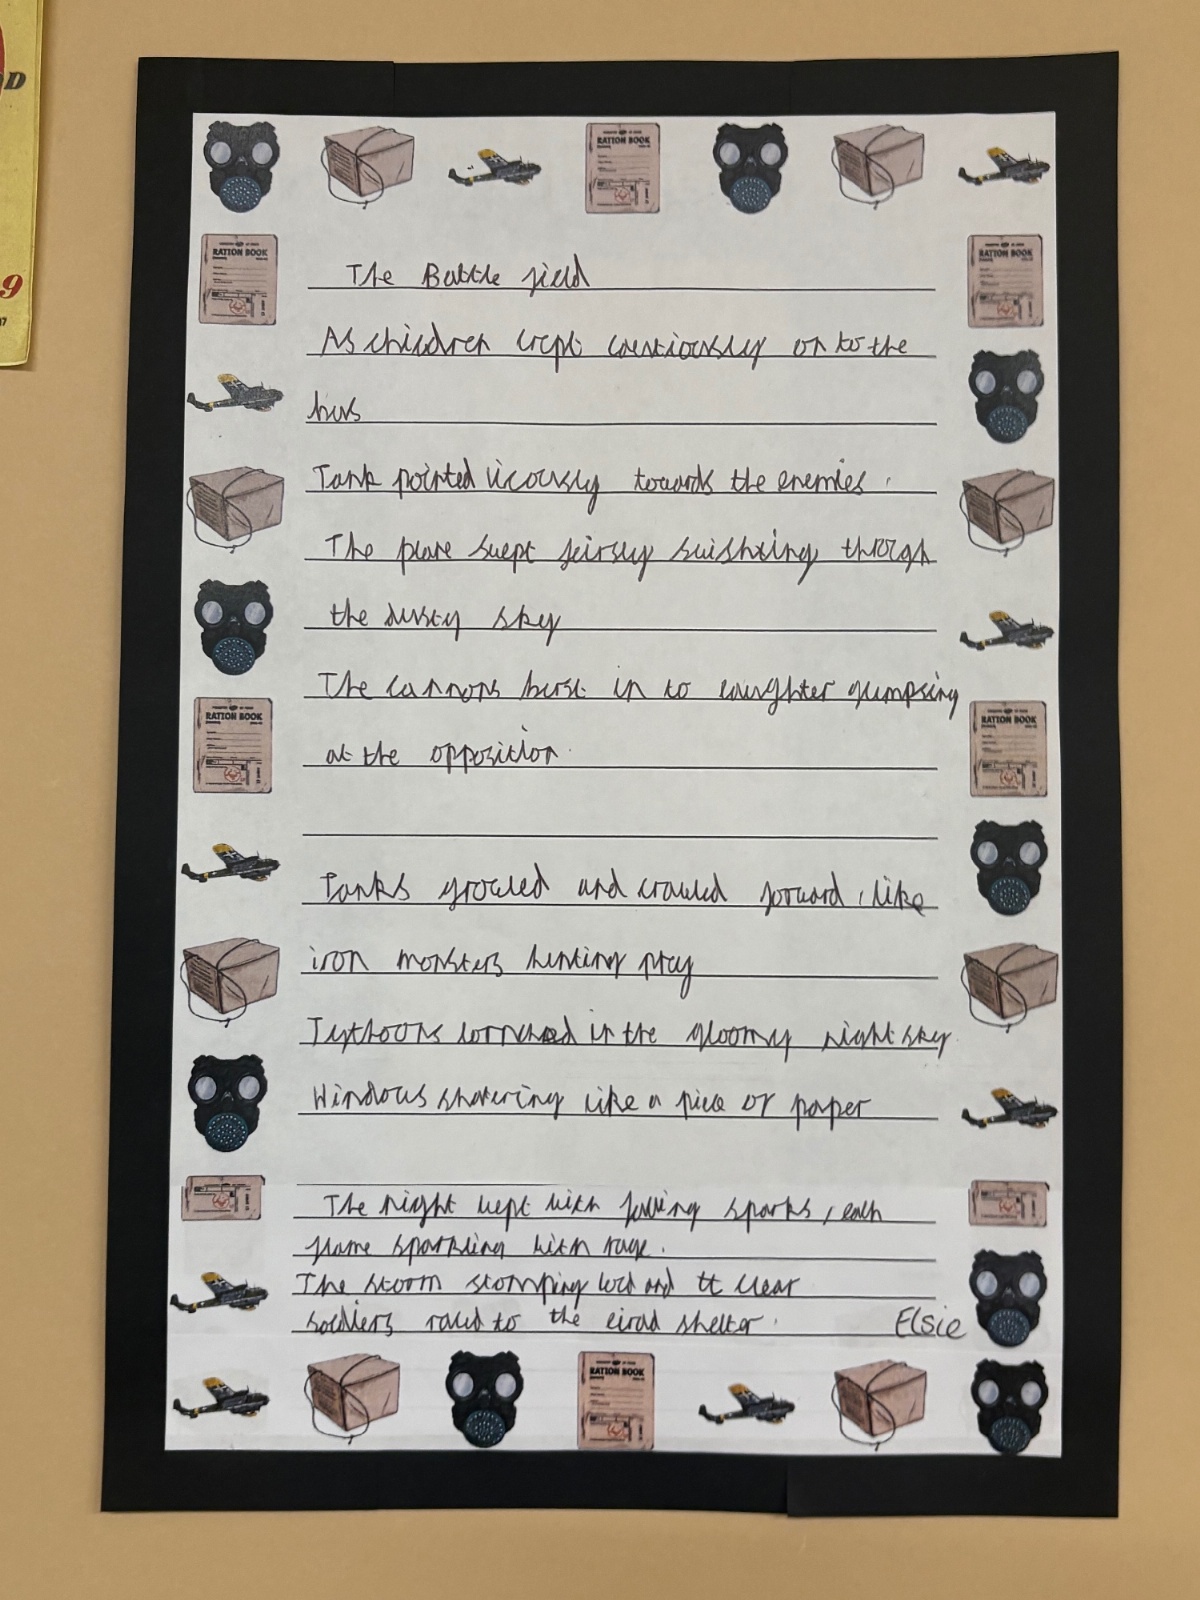 D
9
RATION BOOK
RATION BOOK
RATION BOOK
RATION BOOK
The Battle field
As children crept cautiously on to the
bus
Tank pointed vicously towards the enemies.
The plane swept feirsly swishing through
the dusty sky
The cannons burst in to laughter glimpsing
at the opposition.
RATION BOOK
RATION BOOK
Tanks growled and crawled forward, like
iron monsters hunting pray
in the gloomy night sky
Windows shatering like a piece of paper
The night wept with falling sparks, each
flame sparkling with rage.
The storm stomping loud and
soldiers to the shelter.
Elsie
RATION BOOK